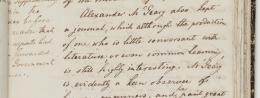 fia
was
before
under that
separate head
to
Government
of me
Alexander McGeary also kept
a journal, which although the production
of one, who is little conversant with
literature, or even common learning
is still highly interesting. McGeary
is evidently a keen observer of
manners, and paid great